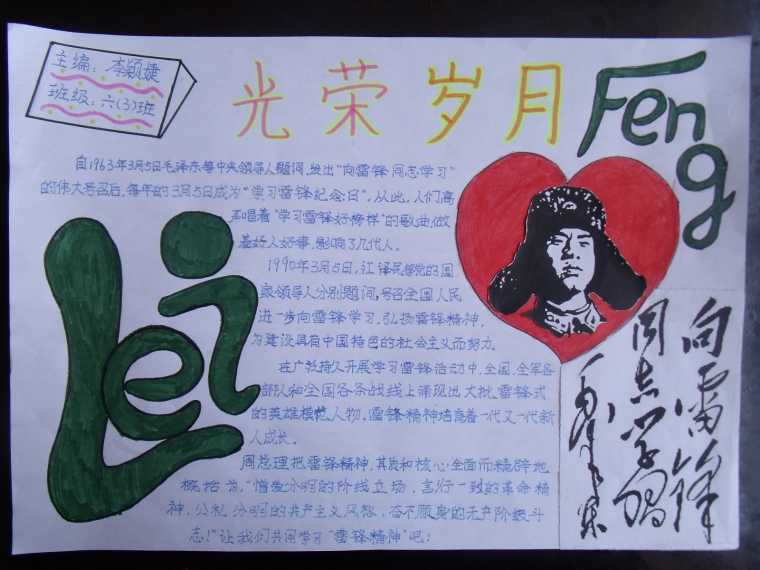 主编：李颖婕
班级：六(3)班
光荣岁月
Feng
Lei
自1963年3月5日毛泽东等中央领导人题词，发出"向雷锋同志学习"
的伟大号召后，每年的3月5日成为"学习雷锋纪念日"。从此，人们高
唱着"学习雷锋好榜样"的歌曲，做
着好人好事，影响了几代人。
1990年3月5日，江泽民等党的国
家领导人分别题词，号召全国人民
进一步向雷锋学习，弘扬雷锋精神，
为建设具有中国特色的社会主义而努力。
在广泛持久开展学习雷锋活动中，全国、全军各
部队和全国各条战线上涌现出大批雷锋式
的英雄模范人物，雷锋精神培育着一代又一代新
人成长。
周总理把雷锋精神，其质和核心全面而精辟地
概括为，"憎爱分明的阶级立场，言行一致的革命精
神，公私分明的共产主义风格，奋不顾身的无产阶级斗
志！"让我们共同学习"雷锋精神"吧！
向雷锋
同志学习
毛泽东